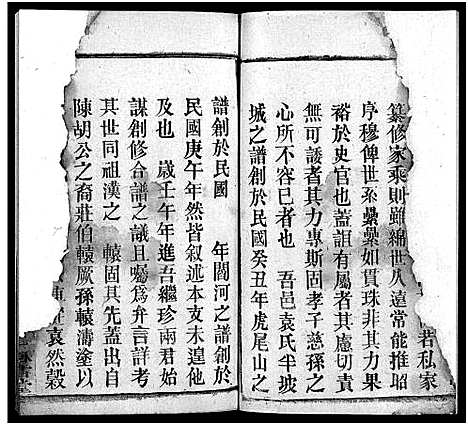 若私家
纂修家乘則雖綿世久遠常能推昭
序穆俾世系纍纍如貫珠非其力果
裕於史官也蓋詛有屬者其慮切責
無可諉者其力專斯固孝子慈孫之
心所不容已者也 吾邑袁氏半坡
城之譜創於民國癸丑年虎尾山之
譜創於民國 年閣河之譜創於
民國庚午年然皆叙述本支未遑他
及也 歲壬午年進吾繼珍兩君始
謀創修合譜之議且囑爲弁言詳考
其世同祖漢之 轅固其先蓋出自
陳胡公之裔莊伯轅厥孫轅濤塗以
袁然穀